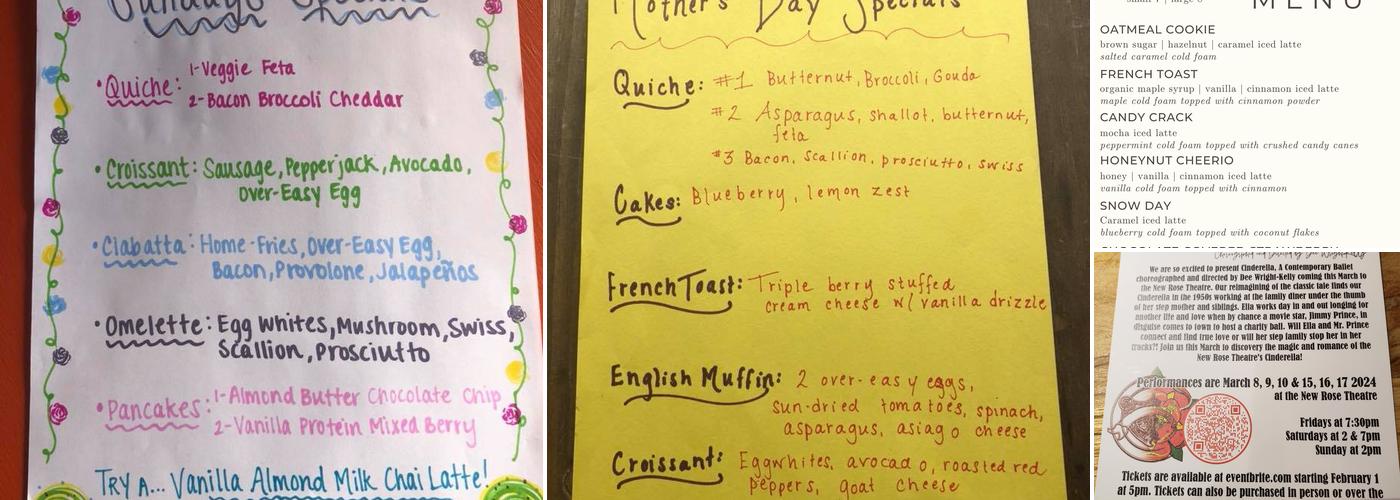 Sunday's Specials
• Quiche: 1-Veggie Feta
2-Bacon Broccoli Cheddar
• Croissant: Sausage, Pepperjack, Avocado,
Over-Easy Egg
• Ciabatta: Home-Fries, Over-Easy Egg,
Bacon, Provolone, Jalapeños
• Omelette: Egg Whites, Mushroom, Swiss,
Scallion, Prosciutto
• Pancakes: 1-Almond Butter Chocolate Chip
2-Vanilla Protein Mixed Berry
TRY A... Vanilla Almond Milk Chai Latte!
Mother's Day Specials
Quiche: #1 Butternut, Broccoli, Gouda
#2 Asparagus, shallot, butternut,
feta
#3 Bacon, Scallion, prosciutto, swiss
Cakes: Blueberry, lemon zest
French Toast: Triple berry stuffed
cream cheese w/ vanilla drizzle
English Muffin: 2 over-easy eggs,
sun-dried tomatoes, spinach,
asparagus, asiago cheese
Croissant: Eggwhites, avocado, roasted red
peppers, goat cheese
MENU
OATMEAL COOKIE
brown sugar | hazelnut | caramel iced latte
salted caramel cold foam
FRENCH TOAST
organic maple syrup | vanilla | cinnamon iced latte
maple cold foam topped with cinnamon powder
CANDY CRACK
mocha iced latte
peppermint cold foam topped with crushed candy canes
HONEYNUT CHEERIO
honey | vanilla | cinnamon iced latte
vanilla cold foam topped with cinnamon
SNOW DAY
Caramel iced latte
blueberry cold foam topped with coconut flakes
We are so excited to present Cinderella, A Contemporary Ballet
choreographed and directed by Dee Wright-Kelly coming this March to
the New Rose Theatre. Our reimagining of the classic tale finds our
Cinderella in the 1950s working at the family diner under the thumb
of her step mother and siblings. Ella works day in and out longing for
another life and love when by chance a movie star, Jimmy Prince, in
disguise comes to town to host a charity ball. Will Ella and Mr. Prince
connect and find true love or will her step family stop her in her
tracks?! Join us this March to discovery the magic and romance of the
New Rose Theatre's Cinderella!
Performances are March 8, 9, 10 & 15, 16, 17 2024
at the New Rose Theatre
Fridays at 7:30pm
Saturdays at 2 & 7pm
Sunday at 2pm
Tickets are available at eventbrite.com starting February 1
at 5pm. Tickets can also be purchased in person or over the